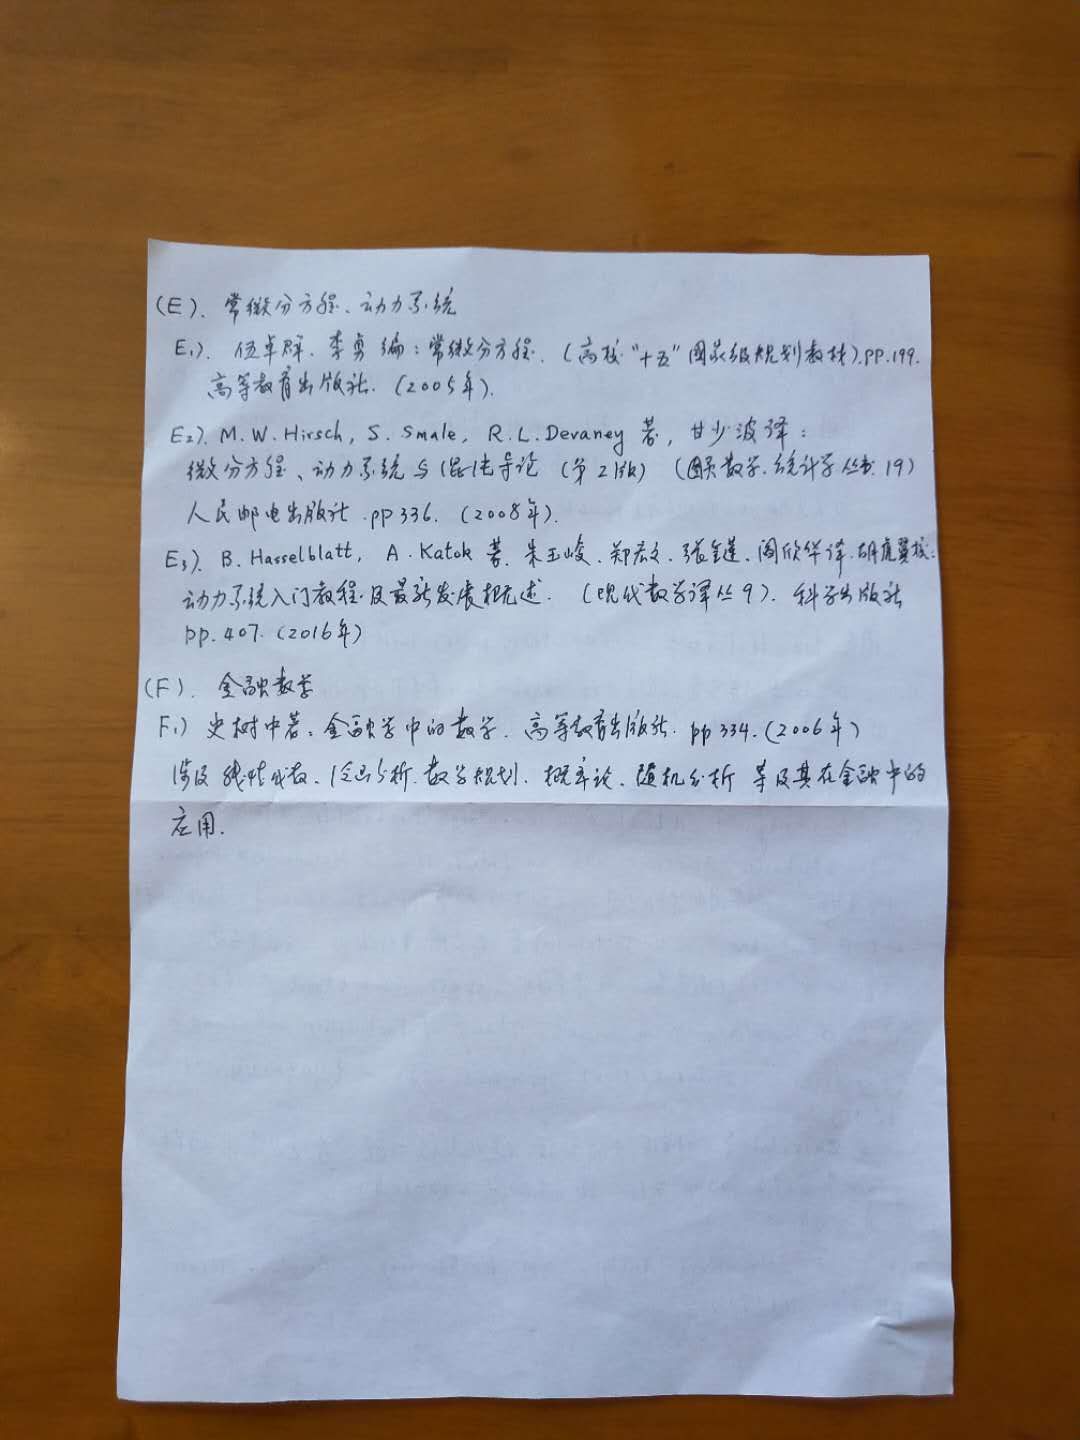 (E). 常微分方程、动力系统
E₁). 伍卓群. 李勇 编: 常微分方程. (高校"十五"国家级规划教材). pp. 199.
高等教育出版社. (2005年).
E₂). M. W. Hirsch, S. Smale, R. L. Devaney 著, 甘少波译:
微分方程、动力系统与混沌导论 (第2版) (图灵数学.统计学丛书 19)
人民邮电出版社. pp 336. (2008年).
E₃). B. Hasselblatt, A. Katok 著. 朱玉峻. 郑宏文. 张金莲. 阎欣华译. 胡虎翼校:
动力系统入门教程及最新发展概述. (现代数学译丛 9). 科学出版社
pp. 407. (2016年)
(F). 金融数学
F₁) 史树中著: 金融学中的数学. 高等教育出版社. pp 334. (2006年)
涉及 线性代数. 凸分析. 数学规划. 概率论. 随机分析 等及其在金融中的
应用.